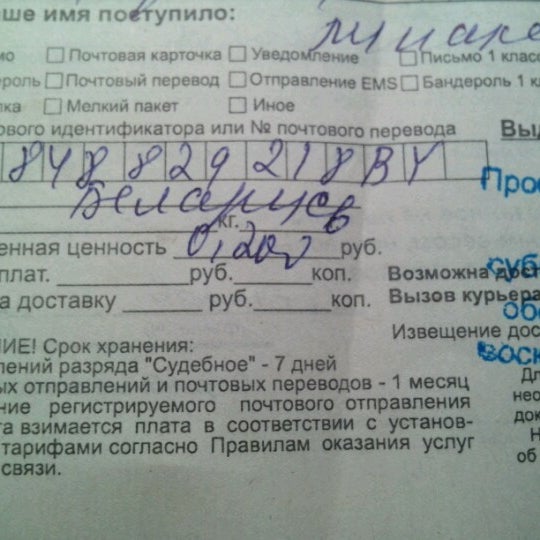 ше имя поступило:
мо Почтовая карточка Уведомление Письмо 1 класс
ероль Почтовый перевод Отправление EMS Бандероль 1 к
лка Мелкий пакет Иное
ового идентификатора или № почтового перевода Выд
848 829 218 BY
Прос
Беларусь
кг.
енная ценность 0,200 руб.
суб
плат. руб. коп. Возможна дост
а доставку руб. коп. Вызов курьера
об
Извещение дос
воск
ИЕ! Срок хранения:
лений разряда "Судебное" - 7 дней
ых отправлений и почтовых переводов - 1 месяц
ние регистрируемого почтового отправления
та взимается плата в соответствии с установ-
тарифами согласно Правилам оказания услуг
связи.
Дл
нео
док
Н
об